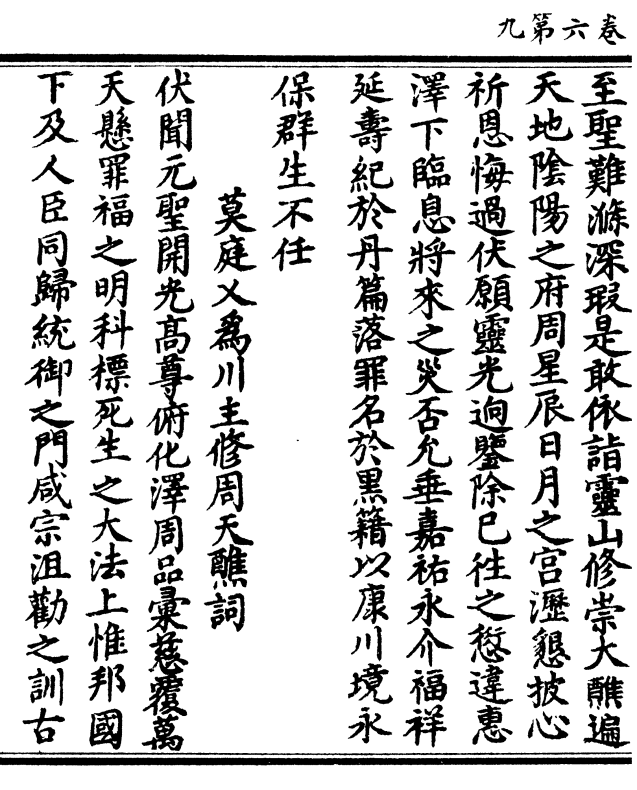 卷六第九
至聖難滌深瑕是敢依詣靈山修崇大醮遍
天地陰陽之府周星辰日月之宮瀝懇披心
祈恩悔過伏願靈光逈鑒除已徃之愆違惠
澤下臨息將來之災否允垂嘉祐永介福祥
延壽紀於丹篇落罪名於黑籍以康川境永
保群生不任
莫庭乂爲川主修周天醮詞
伏聞元聖開光高尊俯化澤周品彙慈覆萬
天懸罪福之明科標死生之大法上惟邦國
下及人臣同歸統御之門咸宗沮勸之訓古